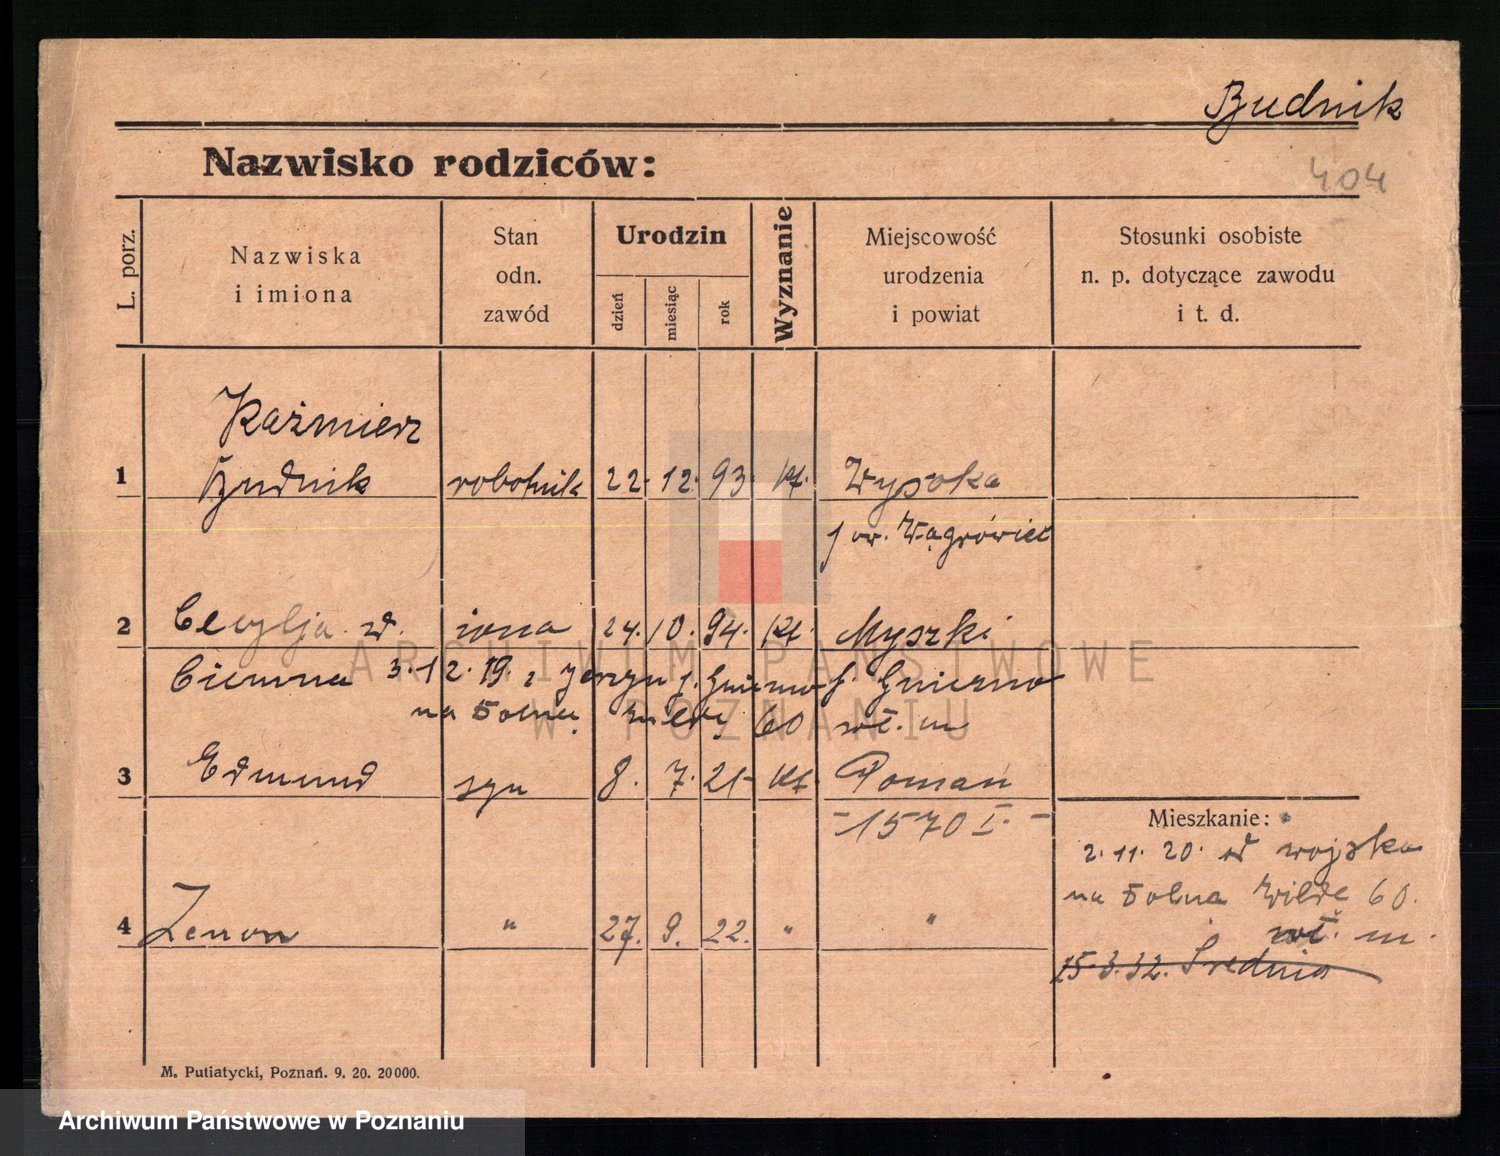 Budnik
Nazwisko rodziców:
404
L. porz.
Nazwiska
i imiona
Stan
odn.
zawód
Urodzin
dzień
miesiąc
rok
Wyznanie
Miejscowość
urodzenia
i powiat
Stosunki osobiste
n. p. dotyczące zawodu
i t. d.
Kaźmierz
1 Budnik robotnik 22. 12. 93. kt. Wysoka
pow. Wągrówiec
2 Cecylja z d. żona 24. 10. 94. kt. Myszki
Ciemna 3.12.19. z p. Gniezno
na Dolną Wildę 60 wł. m
3 Edmund syn 8. 7. 21. kt. Poznań
- 1570 I. -
Mieszkanie:
2. 11. 20. od wojska
na Dolna Wilde 60.
wł. m.
4 Zenon " 27. 9. 22. " "
15.3.32. Średnia
M. Putiatycki, Poznań. 9. 20. 20000.
ARCHIWUM PAŃSTWOWE
W POZNANIU
Archiwum Państwowe w Poznaniu